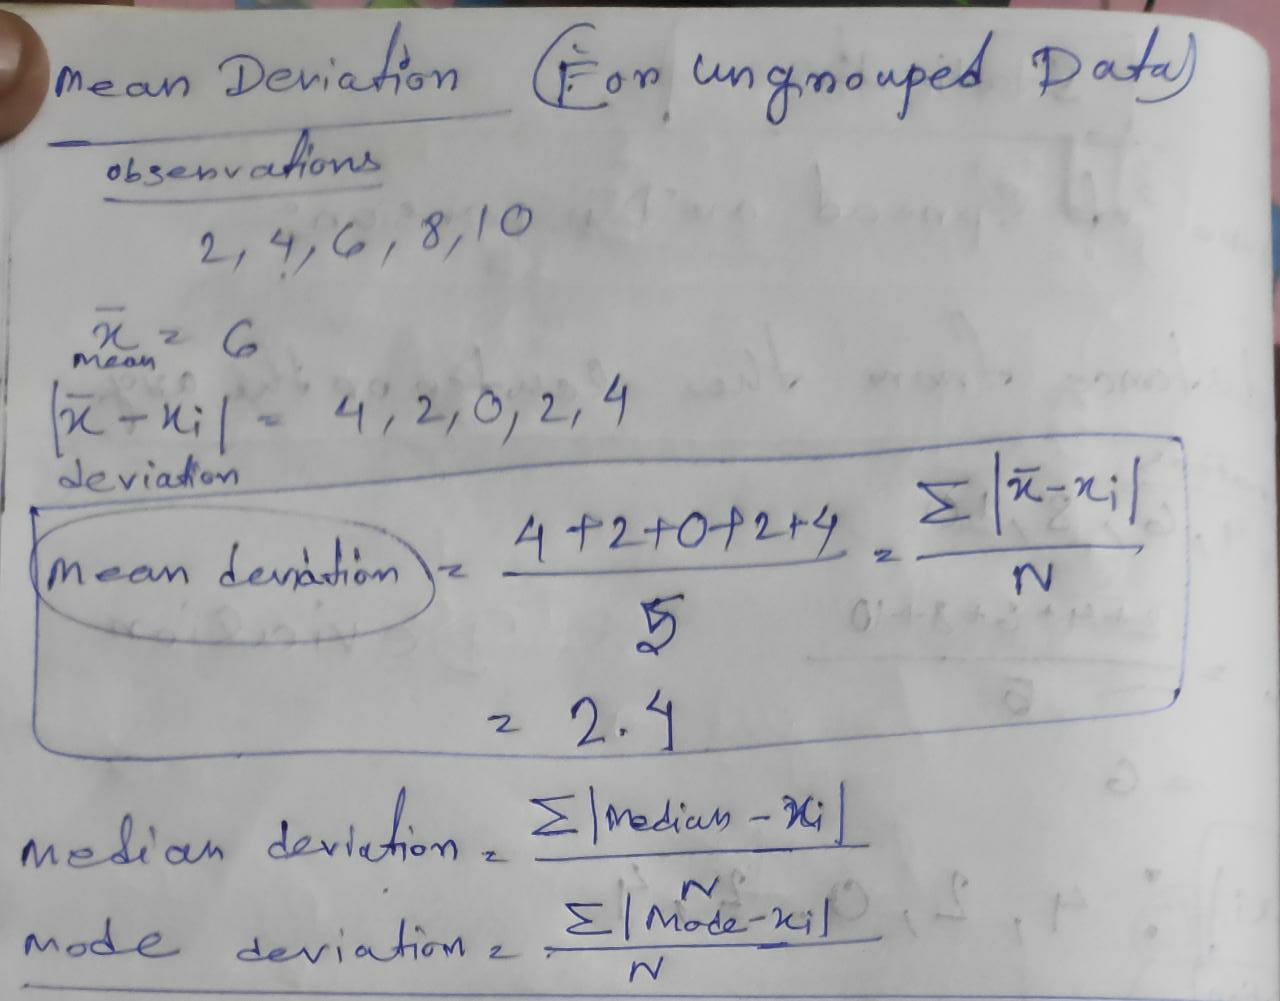 Mean Deviation (For ungrouped Data)
observations
2, 4, 6, 8, 10
x̄ = 6
mean
|x̄ - xi| = 4, 2, 0, 2, 4
deviation
Mean deviation = (4+2+0+2+4)/5 = Σ|x̄-xi|/N
= 2.4
Median deviation = Σ|Median - xi|/N
Mode deviation = Σ|Mode-xi|/N